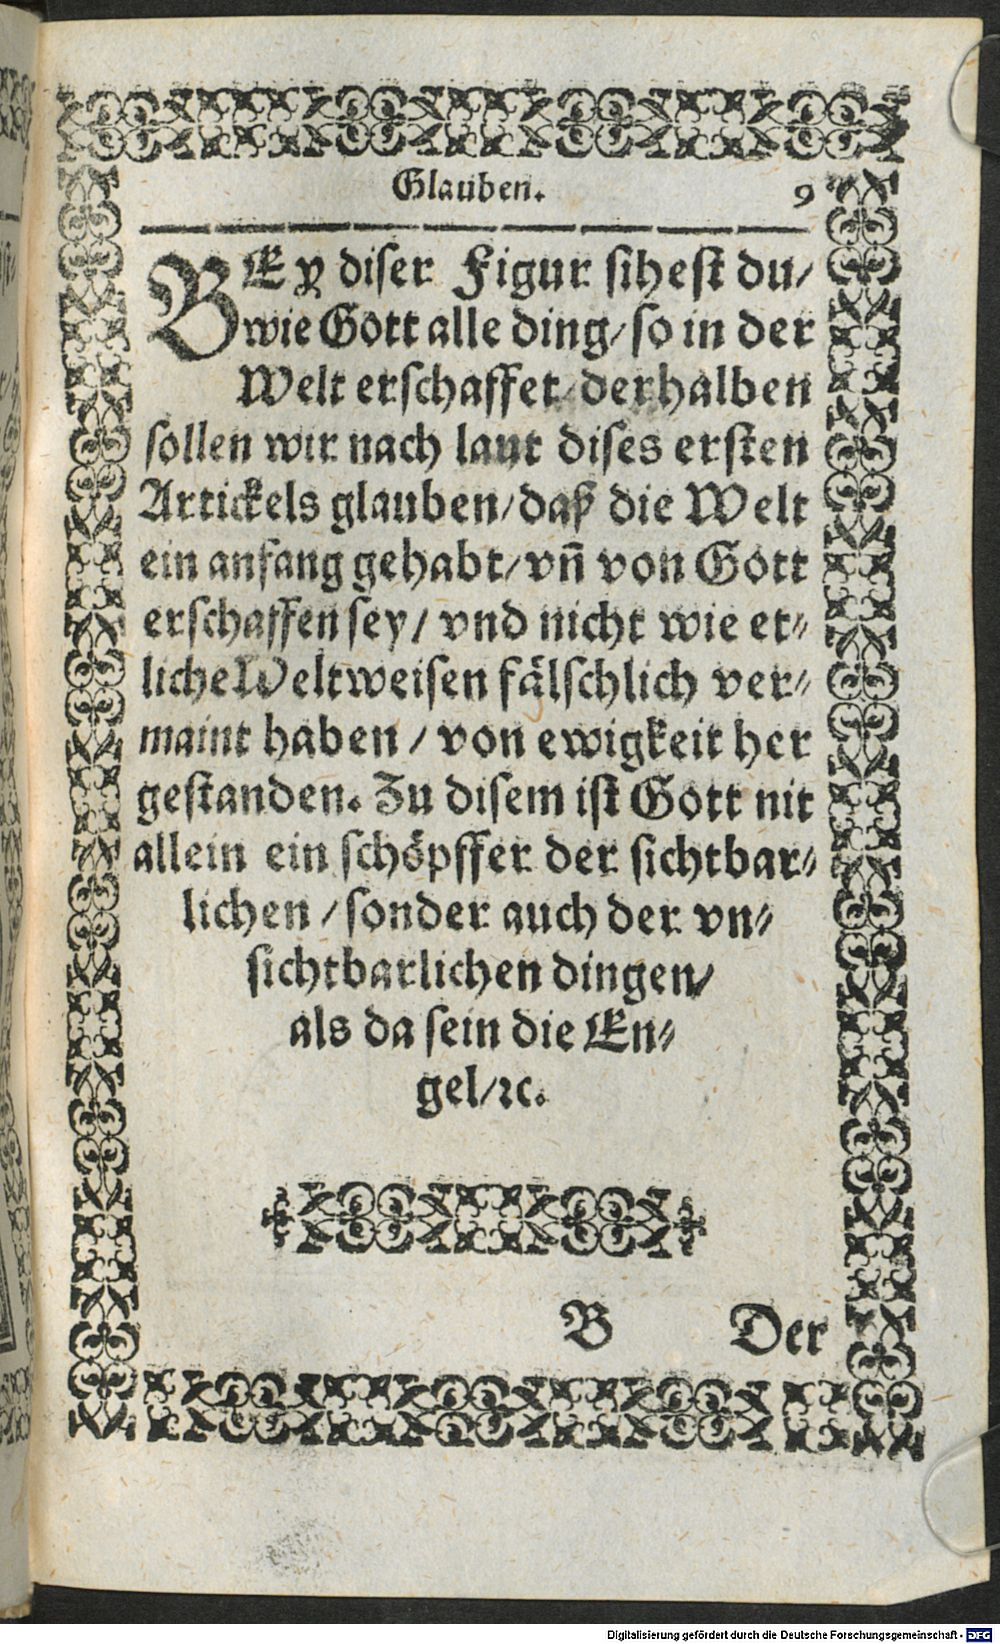 Glauben. 9
BEy diser Figur sihest du/
wie Gott alle ding/ so in der
Welt erschaffet/ derhalben
sollen wir nach laut dises ersten
Artickels glauben/ daß die Welt
ein anfang gehabt/ vñ von Gott
erschaffen sey/ vnd nicht wie et⸗
liche Weltweisen fälschlich ver⸗
maint haben/ von ewigkeit her
gestanden. Zu disem ist Gott nit
allein ein schöpffer der sichtbar⸗
lichen/ sonder auch der vn⸗
sichtbarlichen dingen/
als da sein die En⸗
gel/ ꝛc.
B Der
Digitalisierung gefördert durch die Deutsche Forschungsgemeinschaft - DFG